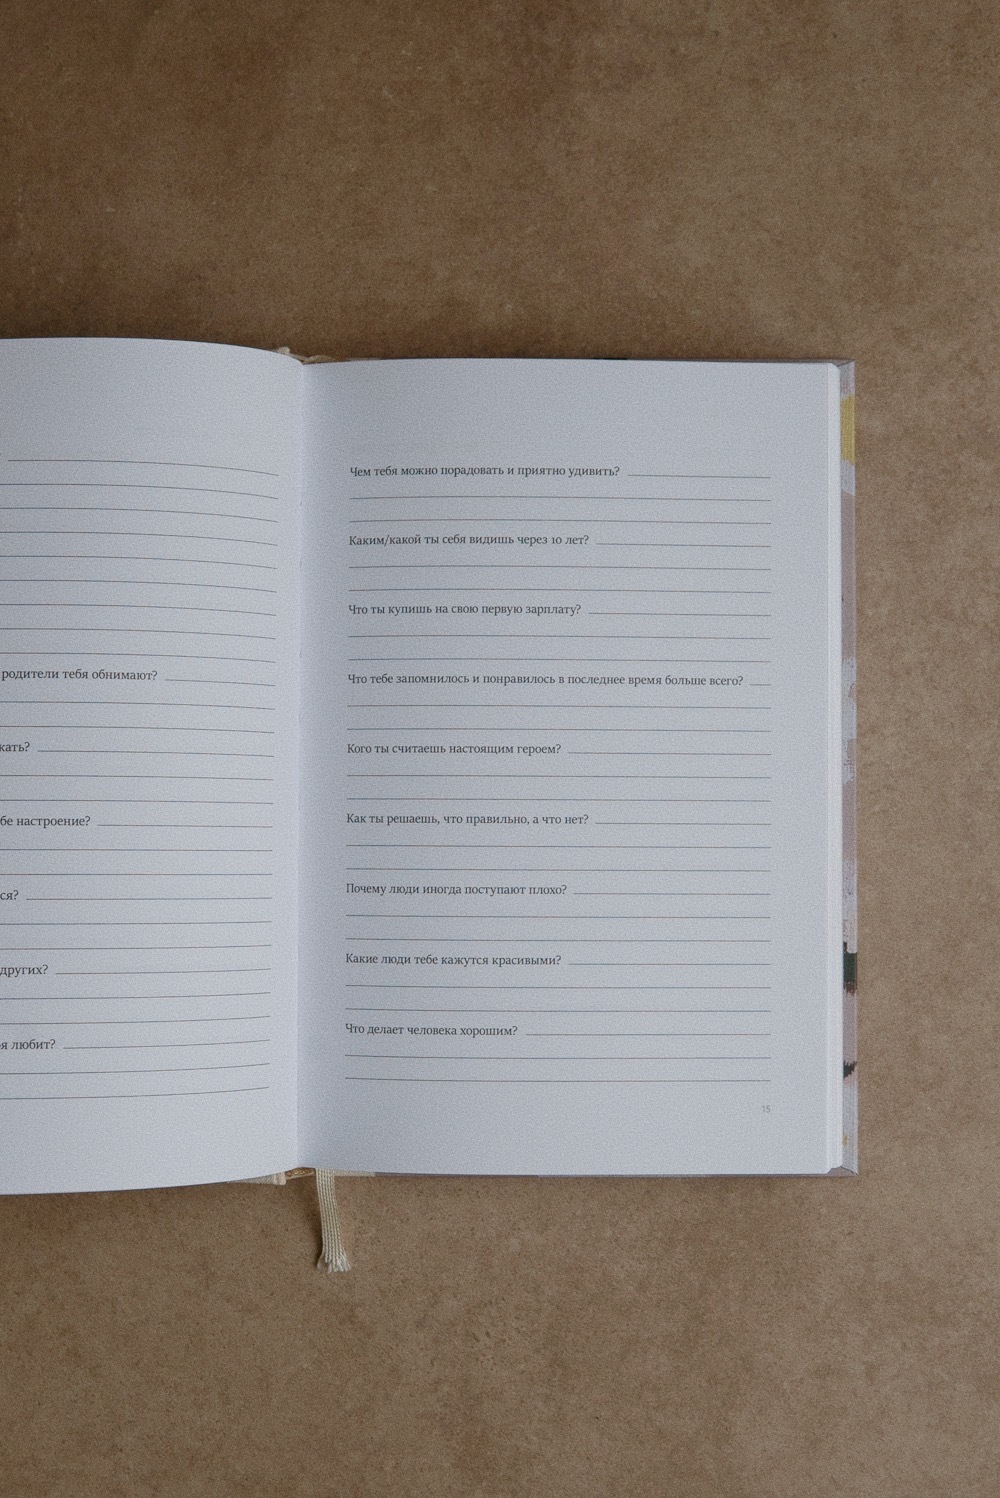 родители тебя обнимают?
бе настроение?
ся?
других?
я любит?
Чем тебя можно порадовать и приятно удивить?
Каким/какой ты себя видишь через 10 лет?
Что ты купишь на свою первую зарплату?
Что тебе запомнилось и понравилось в последнее время больше всего?
Кого ты считаешь настоящим героем?
Как ты решаешь, что правильно, а что нет?
Почему люди иногда поступают плохо?
Какие люди тебе кажутся красивыми?
Что делает человека хорошим?
15